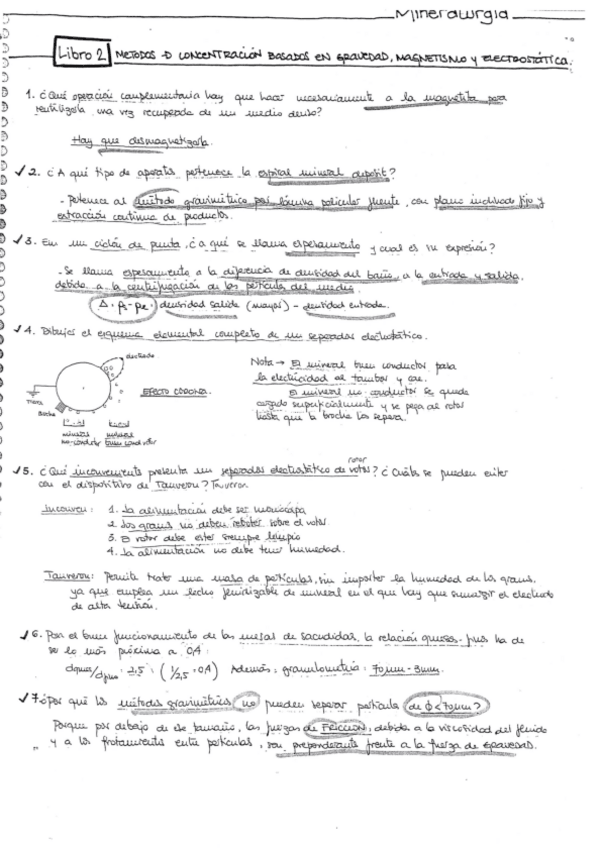 Mineralurgia
Libro 2 METODOS D CONCENTRACIÓN BASADOS EN GRAVEDAD, MAGNETISMO Y ELECTROSTÁTICA.
1. ¿Qué operación complementaria hay que hacer necesariamente a la magnetita para
reutilizarla una vez recuperada de un medio denso?
Hay que desmagnetizarla.
✓ 2. ¿A qué tipo de aparatos pertenece la espiral mineral deposit?
- Pertenece al método gravimétrico por lámina pelicular fluente, con plano inclinado fijo y
extracción continua de productos.
✓ 3. En un ciclón de punta, ¿a qué se llama espesamiento y cual es su expresión?
- Se llama espesamiento a la diferencia de densidad del baño, a la entrada y salida,
debido a la centrifugación de las partículas del medio.
Δ = ρs - ρe = densidad salida (mayor) - densidad entrada.
✓ 4. Dibujar el esquema elemental completo de un separador electrostático.
electrodo
Tierra
Brocha
EFECTO CORONA.
mineral no-conductor
mineral buen conductor
Nota → El mineral buen conductor pasa
la electricidad al tambor y cae.
El mineral no-conductor se queda
cargado superficialmente y se pega al rotor
hasta que la brocha los separa.
✓ 5. ¿Qué inconveniente presenta un separador electrostático de rotor? ¿Cuáles se pueden evitar
con el dispositivo de Tauveron? Tauveron.
Inconven: 1. La alimentación debe ser monocapa
2. Los granos no deben rebotar sobre el rotor
3. El rotor debe estar siempre limpio
4. La alimentación no debe tener humedad.
Tauveron: Permite tratar una masa de partículas, sin importar la humedad de los granos,
ya que emplea un lecho fluidizable de mineral en el que hay que sumergir el electrodo
de alta tensión.
✓ 6. Para el buen funcionamiento de las mesas de sacudidas, la relación gruesos-finos ha de
ser lo más próxima a 0,4:
dgrues/dfinos = 2,5 = (1/2,5 = 0,4) Además: granulometría: 70 μm - 3mm.
✓ 7. ¿Por qué los métodos gravimétricos no pueden separar partícula de Φ < 70 μm?
Porque por debajo de ese tamaño, las fuerzas de FRICCIÓN, debida a la viscosidad del fluido
y a los frotamientos entre partículas, son preponderante frente a la fuerza de GRAVEDAD.